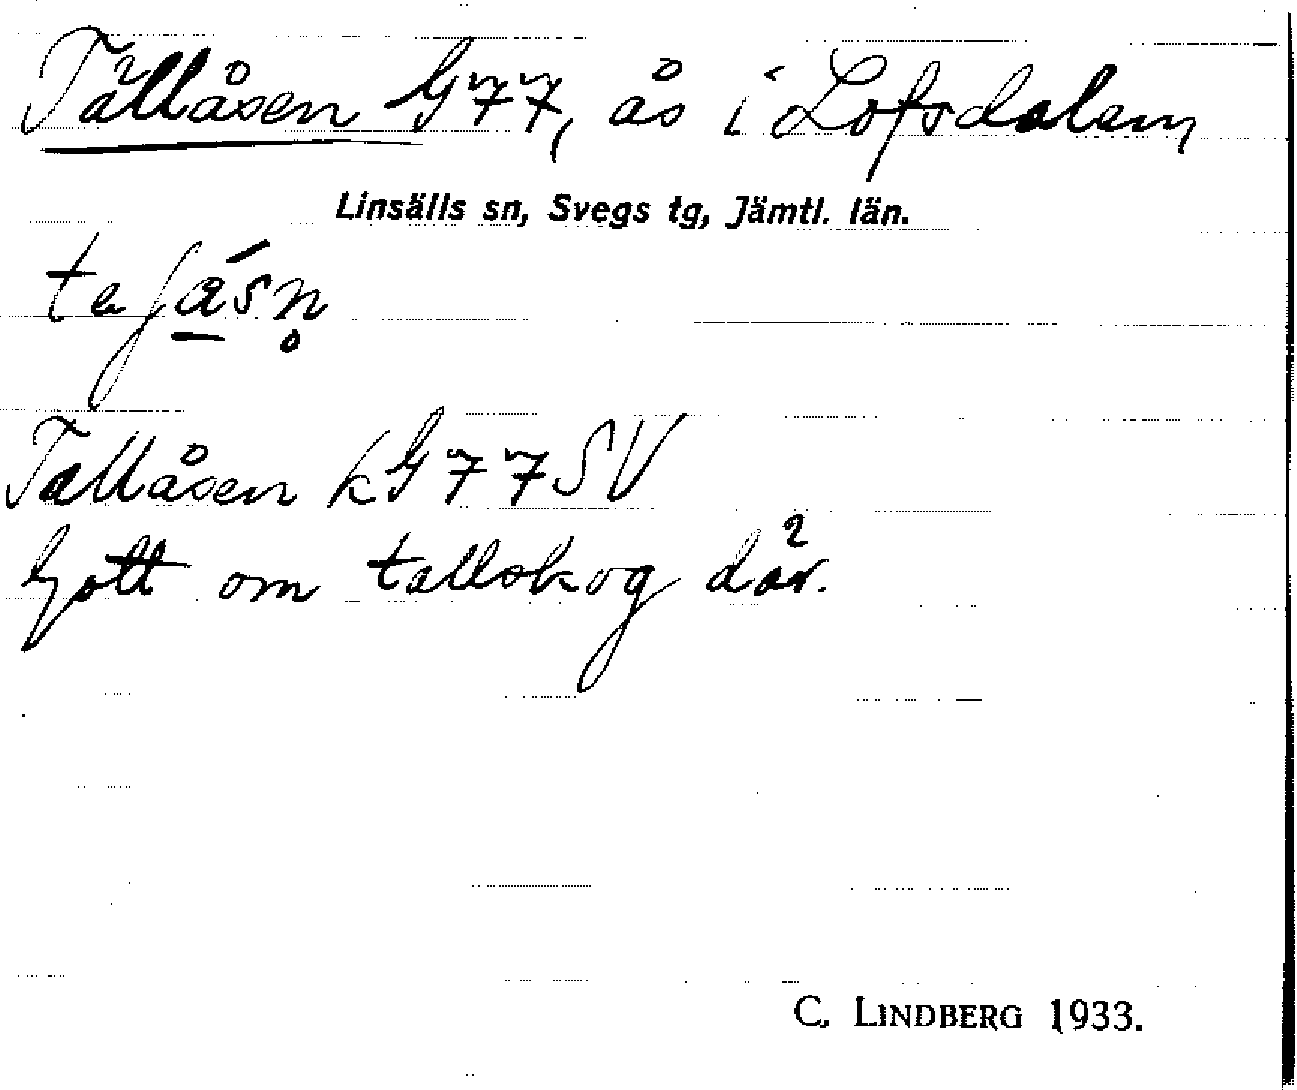 Tällåsen G77, ås i Lofsdalen
Linsälls sn, Svegs tg, Jämtl. län.
Tallåsen k G77SV
Gott om tallskog där.
C. LINDBERG 1933.